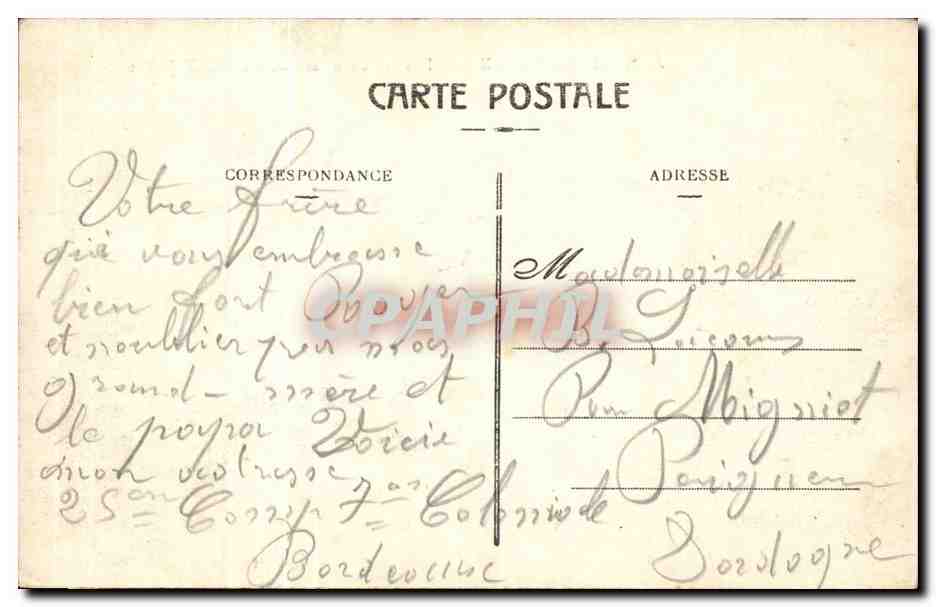 CARTE POSTALE
CORRESPONDANCE
Votre frère
qui vous embrasse
bien fort
et noublier pas mes
grand-mère et
le papa Voicie
mon adresse
25em Comp 7em Coloniale
Bordeaux
ADRESSE
Mademoiselle
B.
Mignot
Dordogne
CPAPHIL